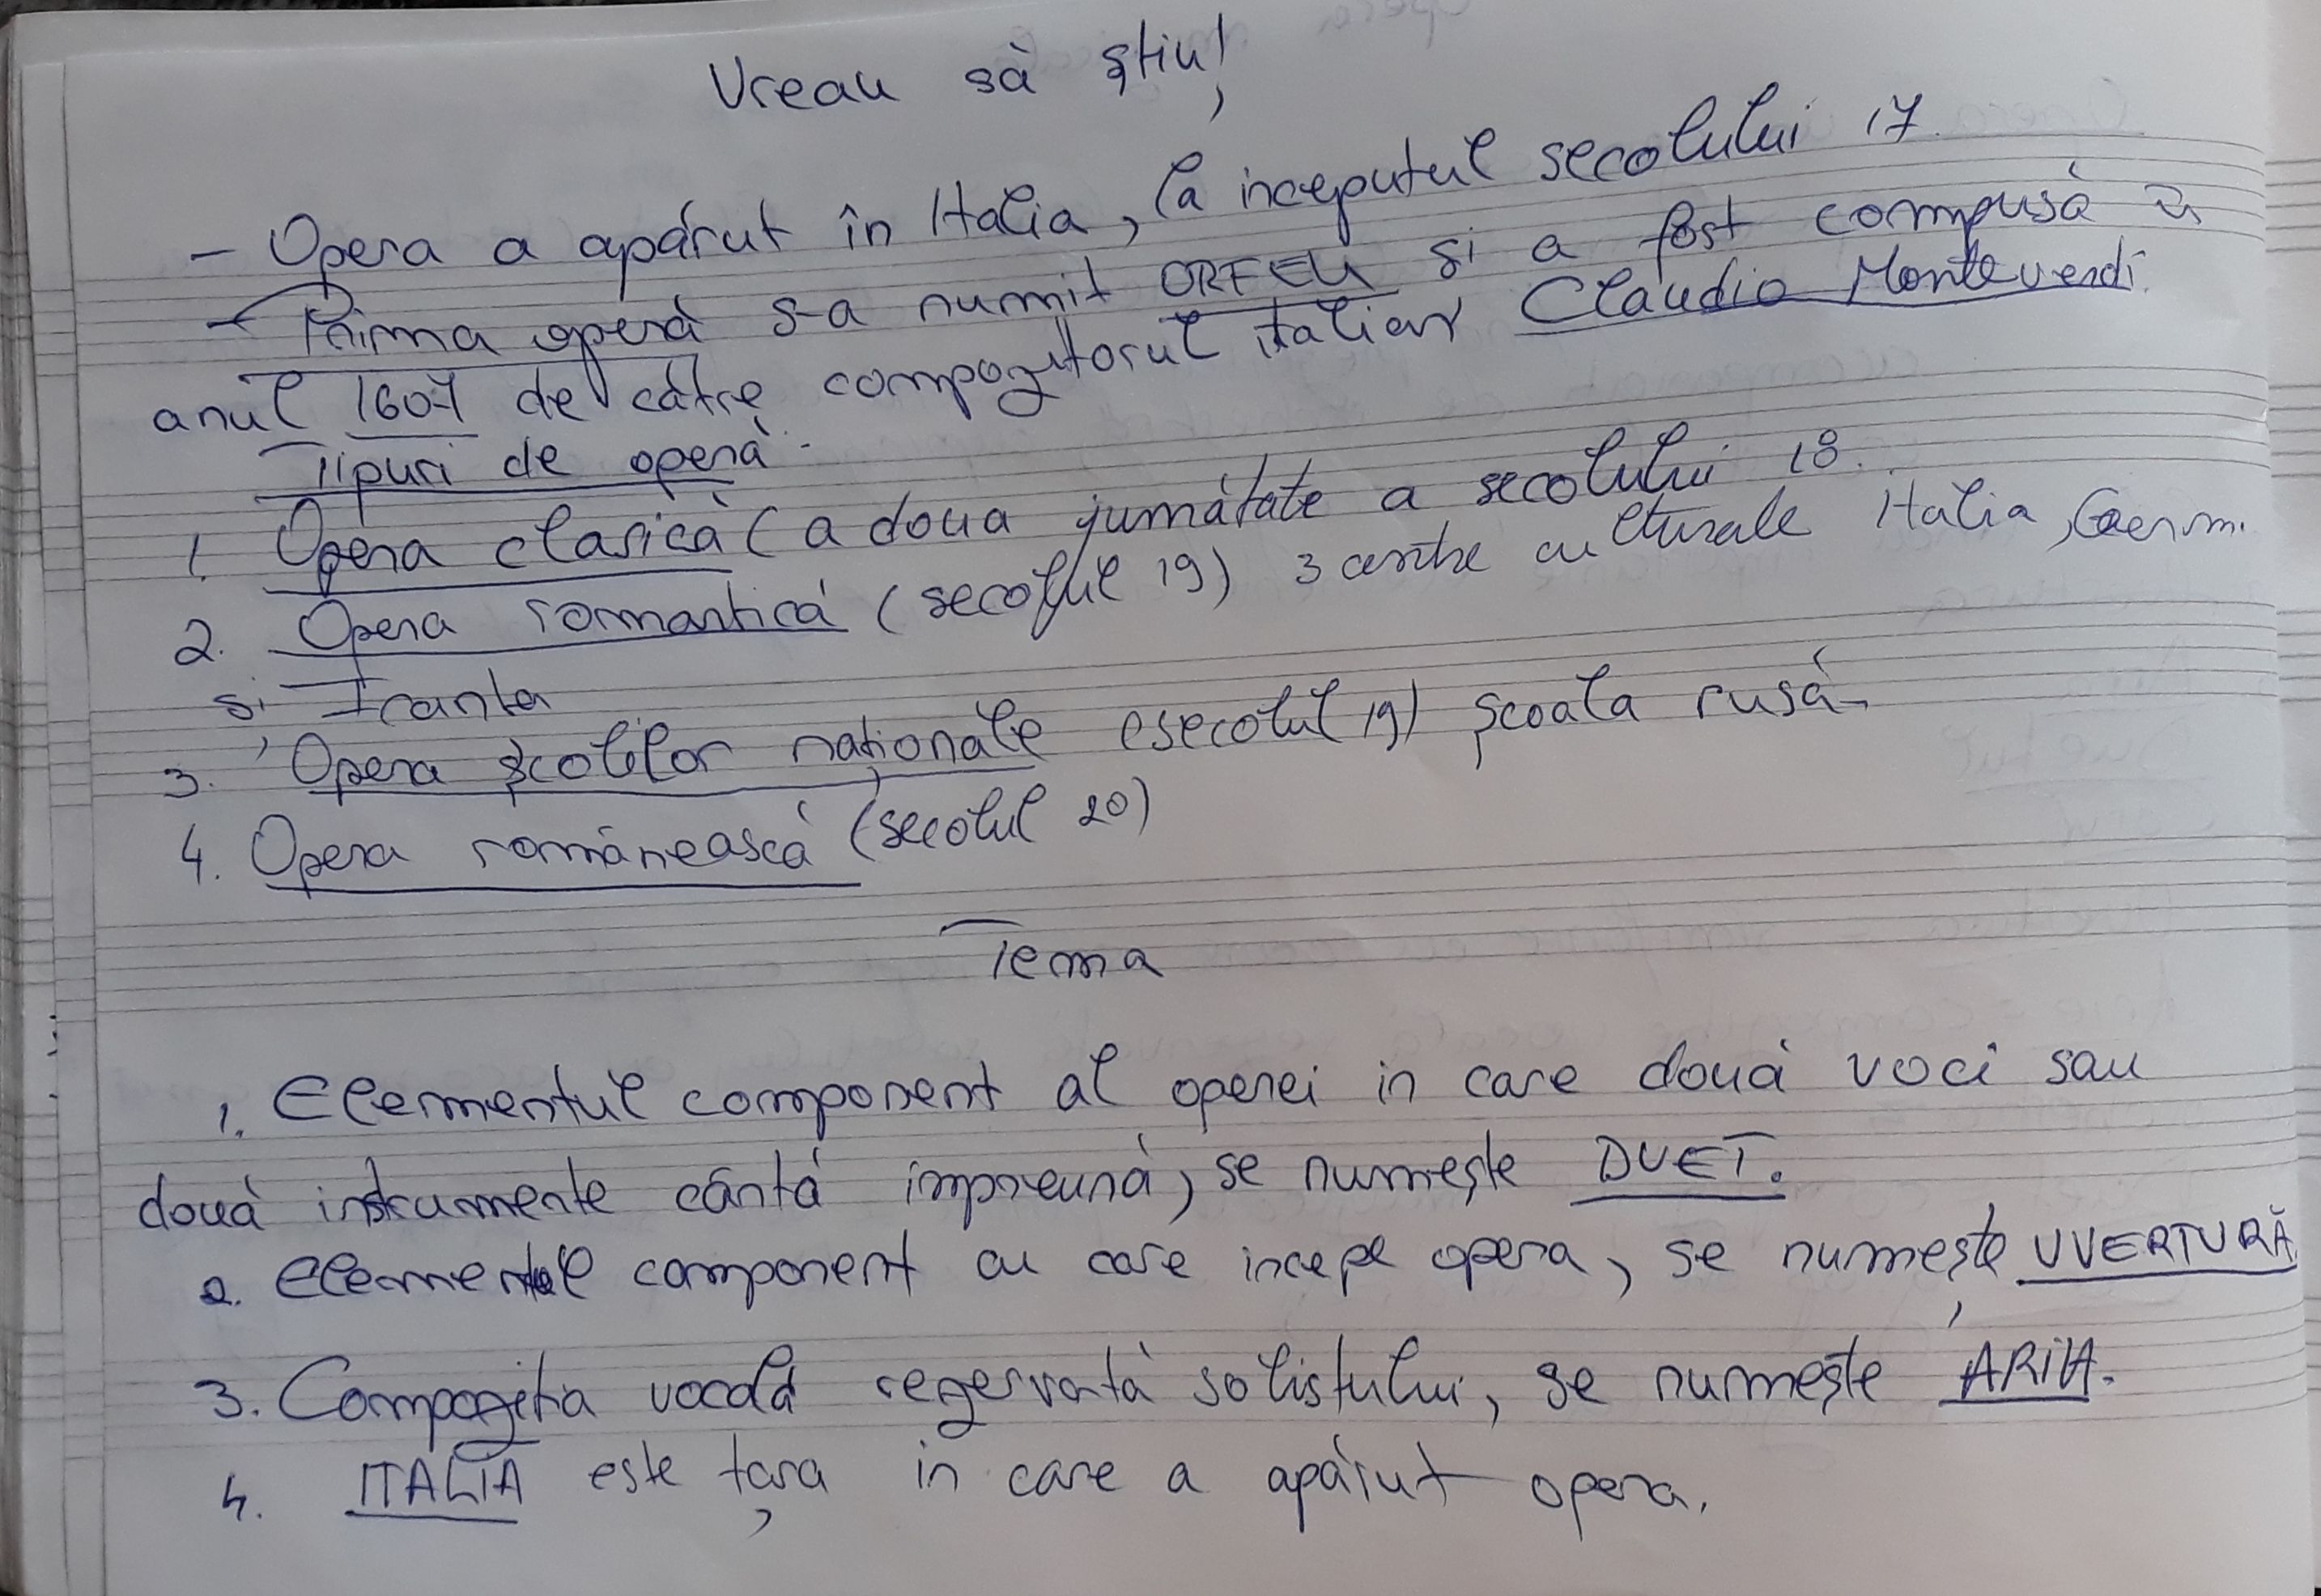 Vreau să știu!
- Opera a apărut în Italia, la inceputul secolului 17.
- Prima operă s-a numit ORFEU si a fost compusă în
anul 1607 de către compozitorul italian Claudio Monteverdi.
Tipuri de operă.
1. Opera clasică (a doua jumătate a secolului 18.
2. Opera romantică (secolul 19) 3 centre culturale Italia, Germ.
și Franta
3. Opera școlilor naționale (secolul 19) școala rusă.
4. Opera românească (secolul 20)
Tema
1. Elementul component al operei in care două voci sau
două instrumente cântă impreună, se numește DUET.
2. Elementul component cu care incepe opera, se numește UVERTURĂ.
3. Compozitia vocală rezervată solistului, se numește ARIA.
4. ITALIA este țara in care a apărut opera.